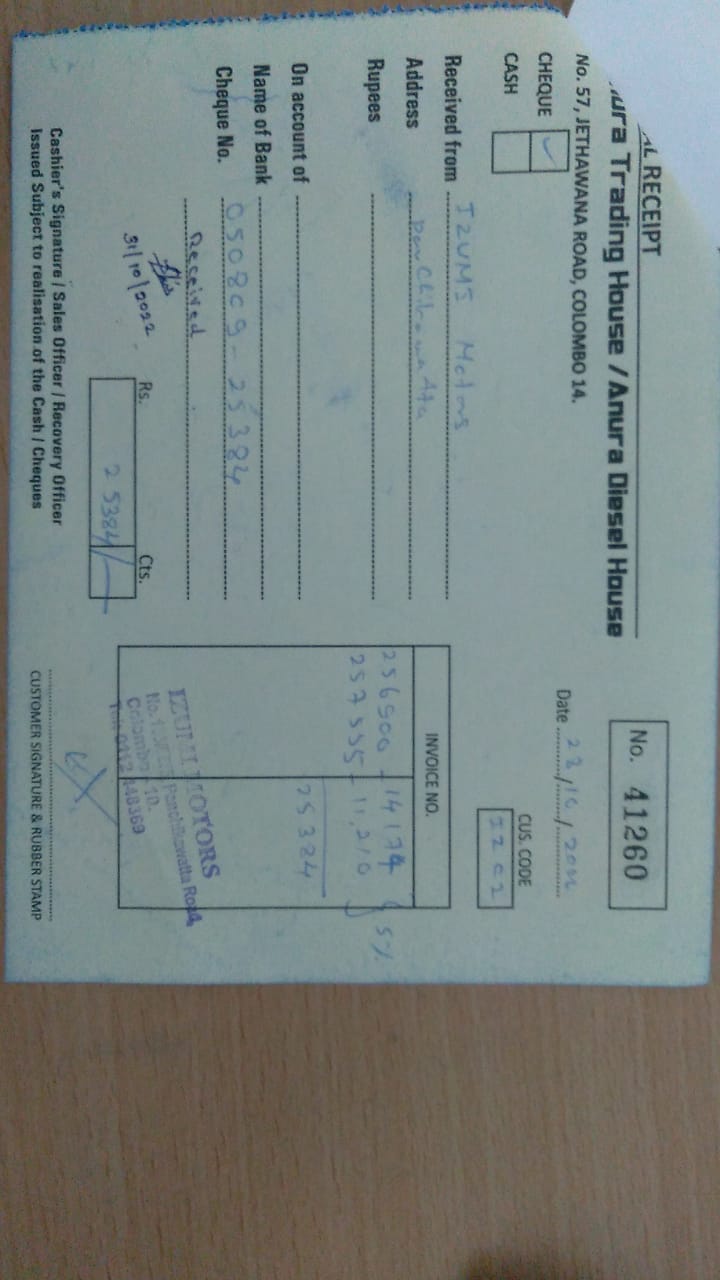 AL RECEIPT
ura Trading House / Anura Diesel House
No. 57, JETHAWANA ROAD, COLOMBO 14.
No. 41260
CHEQUE ✓
CASH
Date 28/10/2022
CUS. CODE
Received from IZUMI Motors
Address
Rupees
On account of
Name of Bank
Cheque No. 050809 - 25384
Received
31/10/2022
INVOICE NO.
256900 - 14174
257535 - 11,210 } 5%
25384
Rs. Cts.
25384/-
IZUMI MOTORS
Panchikawatta Road,
Colombo - 10.
Cashier's Signature / Sales Officer / Recovery Officer
Issued Subject to realisation of the Cash / Cheques
CUSTOMER SIGNATURE & RUBBER STAMP